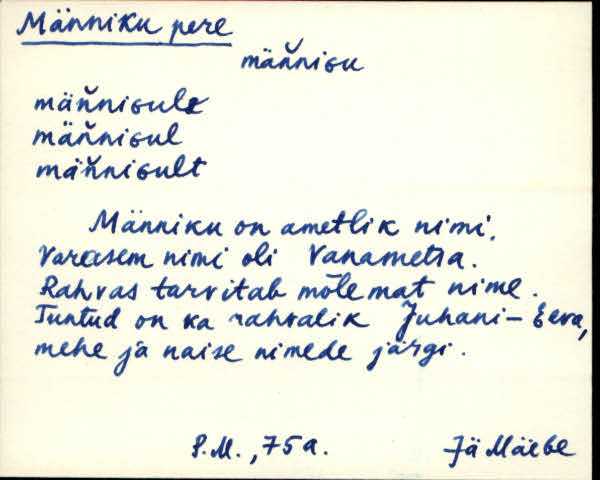 Männiku pere
mäňnigu
mäňnigule
mäňnigul
mäňnigult
Männiku on ametlik nimi.
Varasem nimi oli Vanametsa.
Rahvas tarvitab mõlemat nime.
Tuntud on ka rahvalik Juhani-Eeva,
mehe ja naise nimede järgi.
P.M., 75a. Jä Mäebe